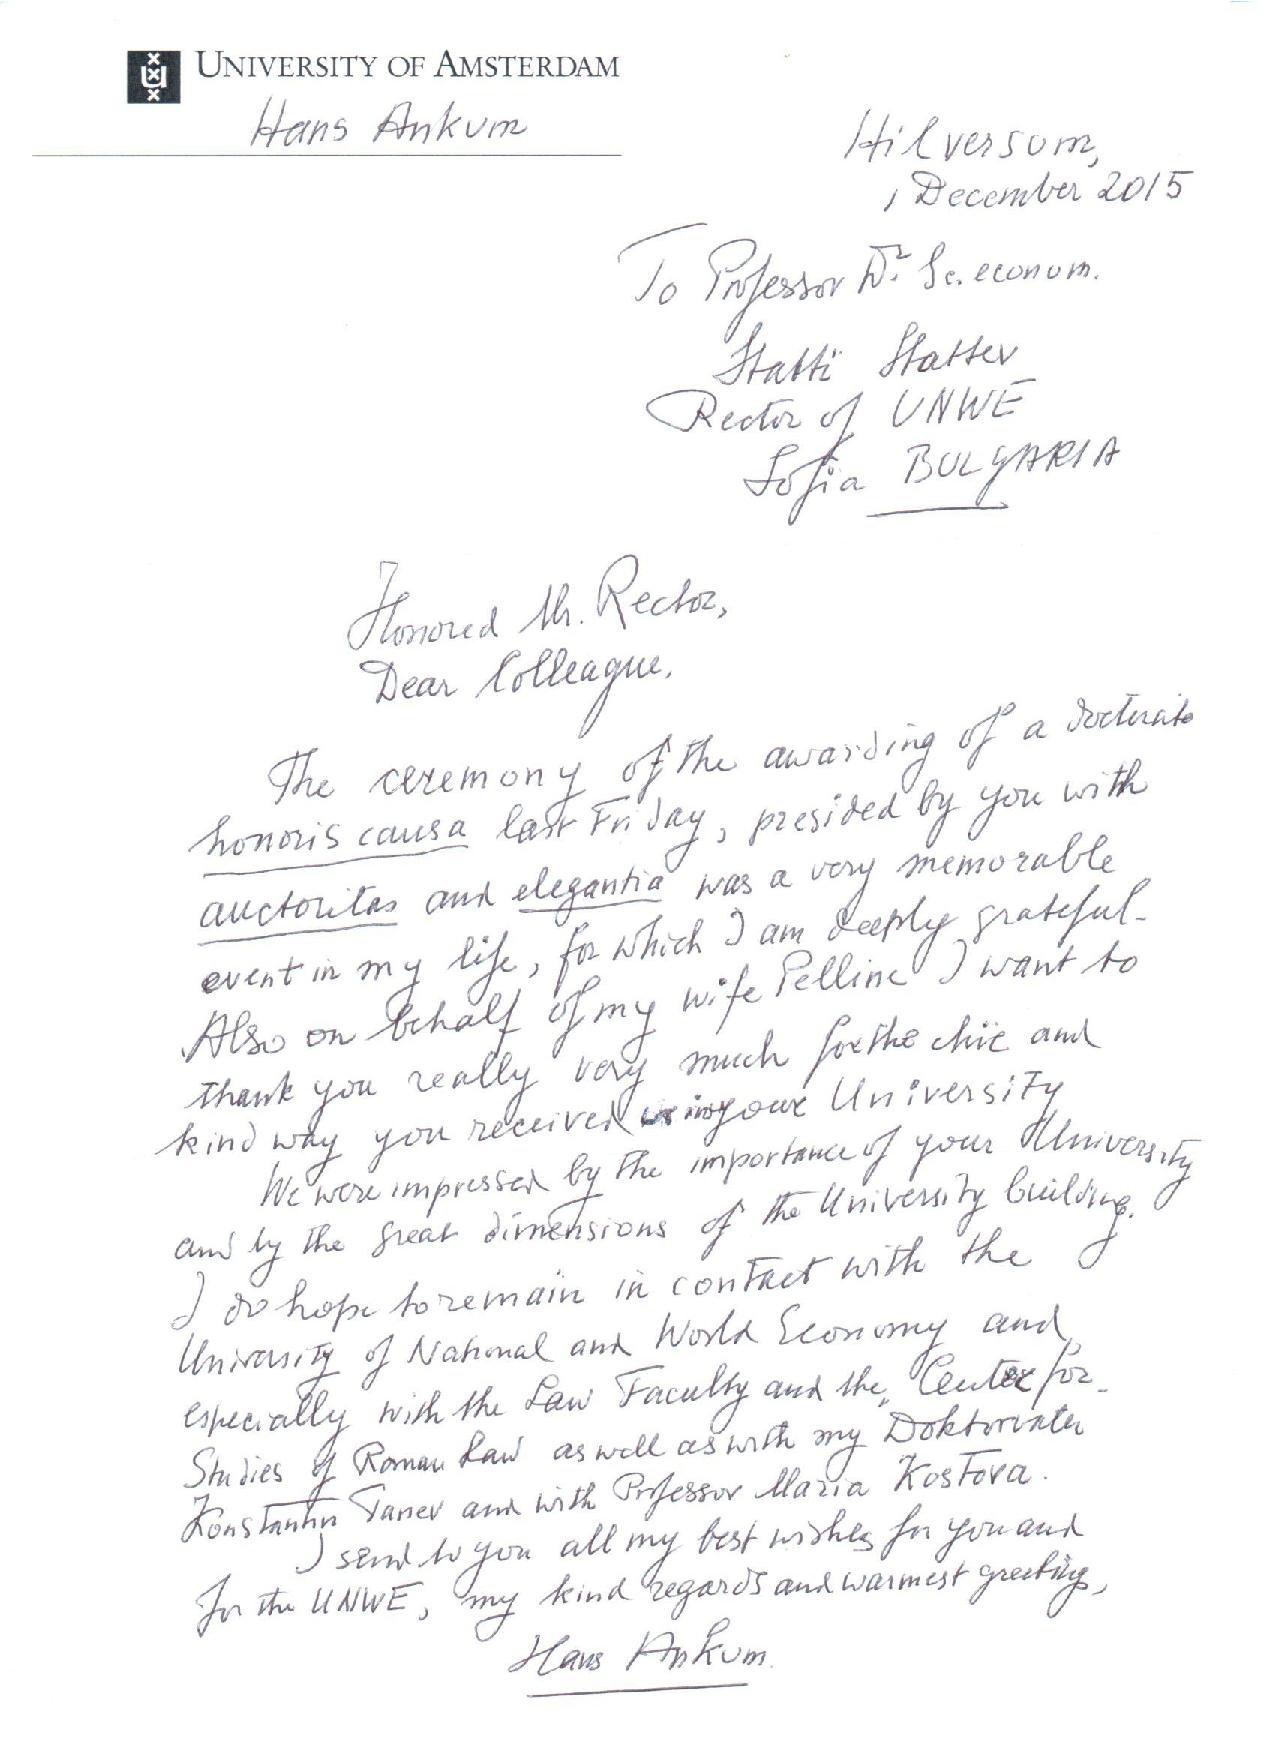 UNIVERSITY OF AMSTERDAM
Hans Ankum
Hilversum,
1 December 2015
To Professor Dr. Sc. econom.
Statti Statter
Rector of UNWE
Sofia BULGARIA
Honored Mr. Rector,
Dear Colleague,
The ceremony of the awarding of a doctorate
honoris causa last Friday, presided by you with
auctoritas and elegantia was a very memorable
event in my life, for which I am deeply grateful.
Also on behalf of my wife Pelline I want to
thank you really very much for the chic and
kind way you received us in your University
We were impressed by the importance of your University
and by the great dimensions of the University building.
I do hope to remain in contact with the
University of National and World Economy and
especially with the Law Faculty and the Center for
Studies of Roman Law as well as with my Doktorvater
Konstantin Tanev and with Professor Maria Kostova.
I send to you all my best wishes for you and
for the UNWE, my kind regards and warmest greetings,
Hans Ankum.